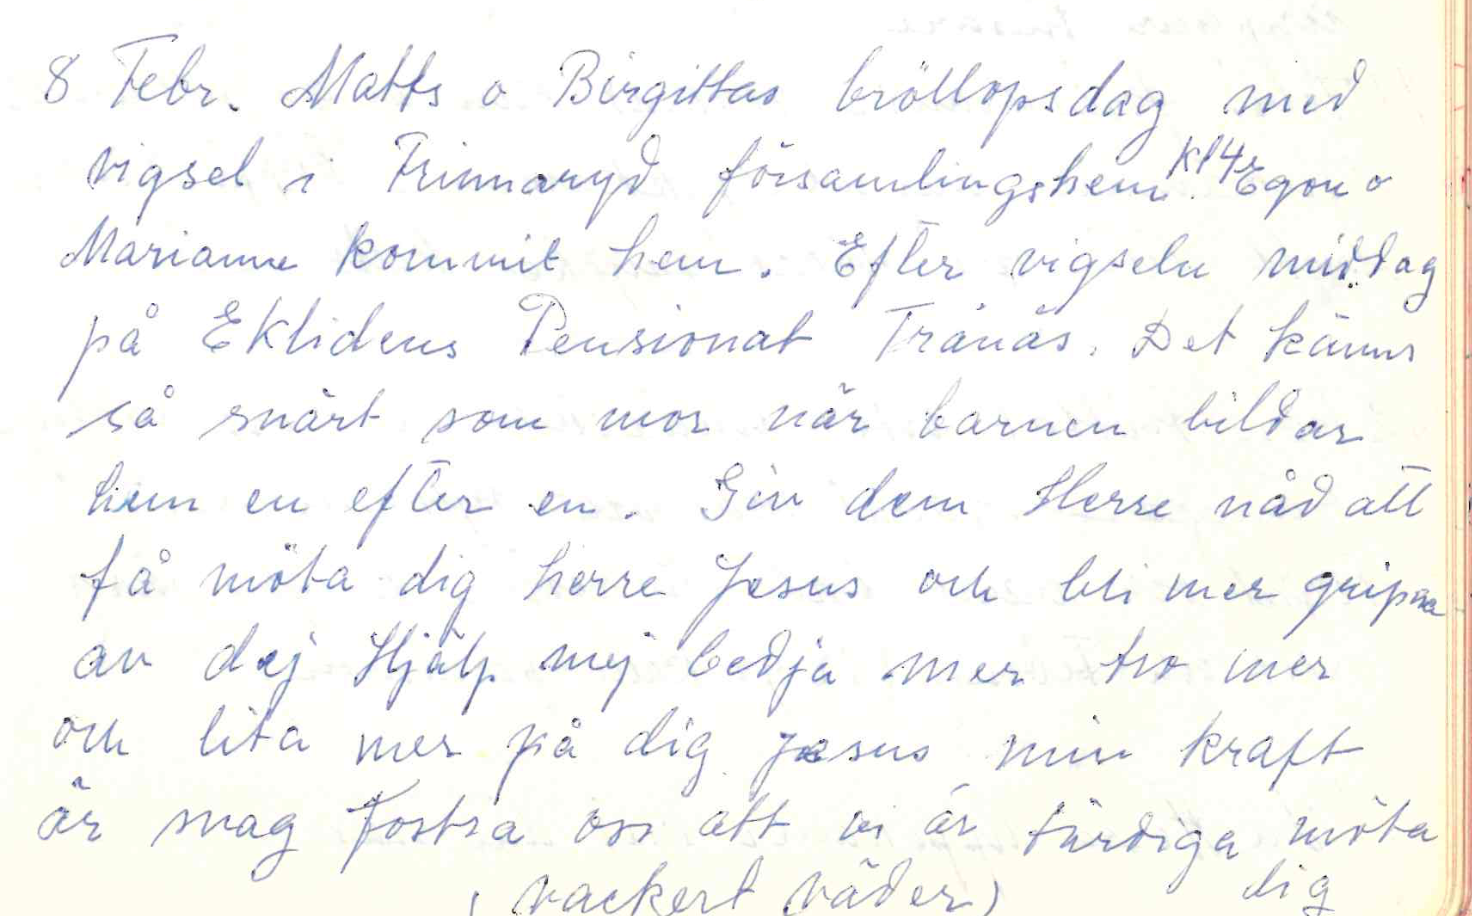 8 Febr. Matts o Birgittas bröllopsdag med
vigsel i Frinnaryd församlingshem kl 4. Egon o
Marianne kommit hem. Efter vigseln middag
på Eklidens Pensionat Tranås. Det känns
så snårt som mor när barnen bildar
hem en efter en. Giv dem Herre nåd att
få möta dig herre Jesus och bli mer gripna
av dej Hjälp mej bedja mer tro mer
och lita mer på dig Jesus min kraft
är svag Fostra oss att vi är färdiga möta
dig
(vackert väder)